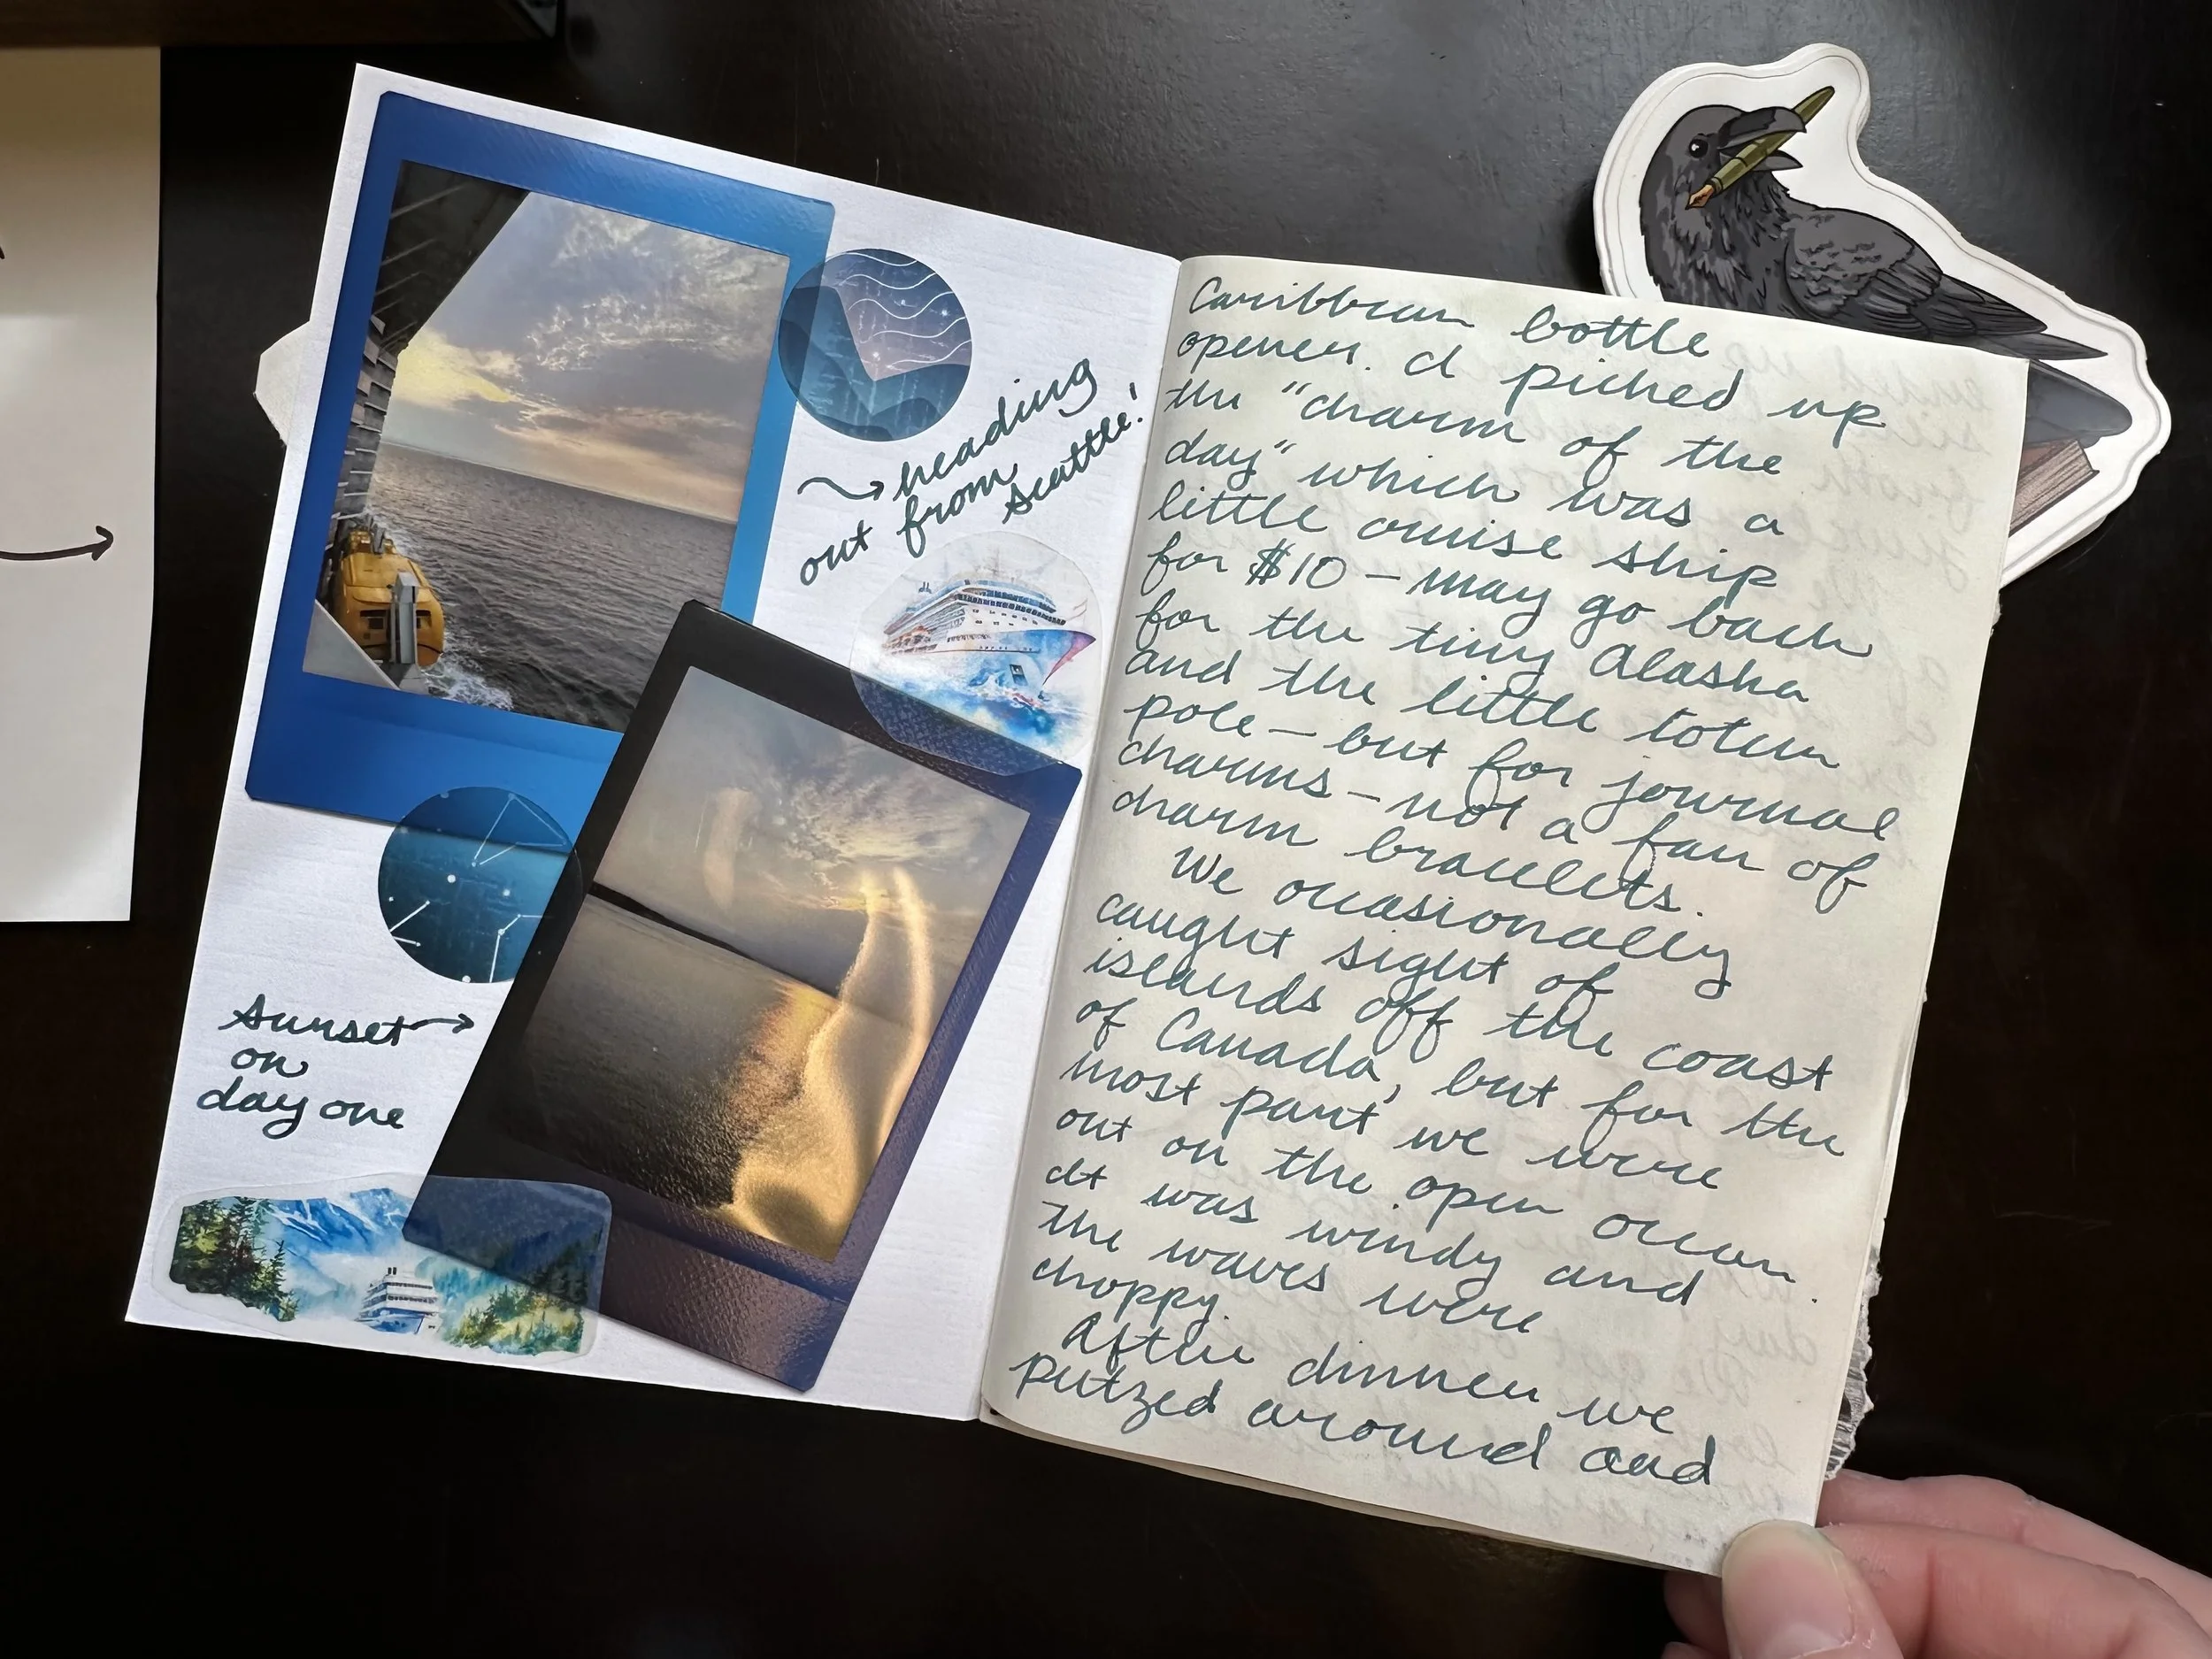 heading
out from
Seattle!
sunset
on
day one
Caribbean bottle
opener. I picked up
the "charm of the
day" which was a
little cruise ship
for $10 - may go back
for the tiny Alaska
and the little totem
pole - but for journal
charms - not a fan of
charm bracelets.
We occasionally
caught sight of
islands off the coast
of Canada, but for the
most part we were
out on the open ocean.
It was windy and
the waves were
choppy.
After dinner we
putzed around and